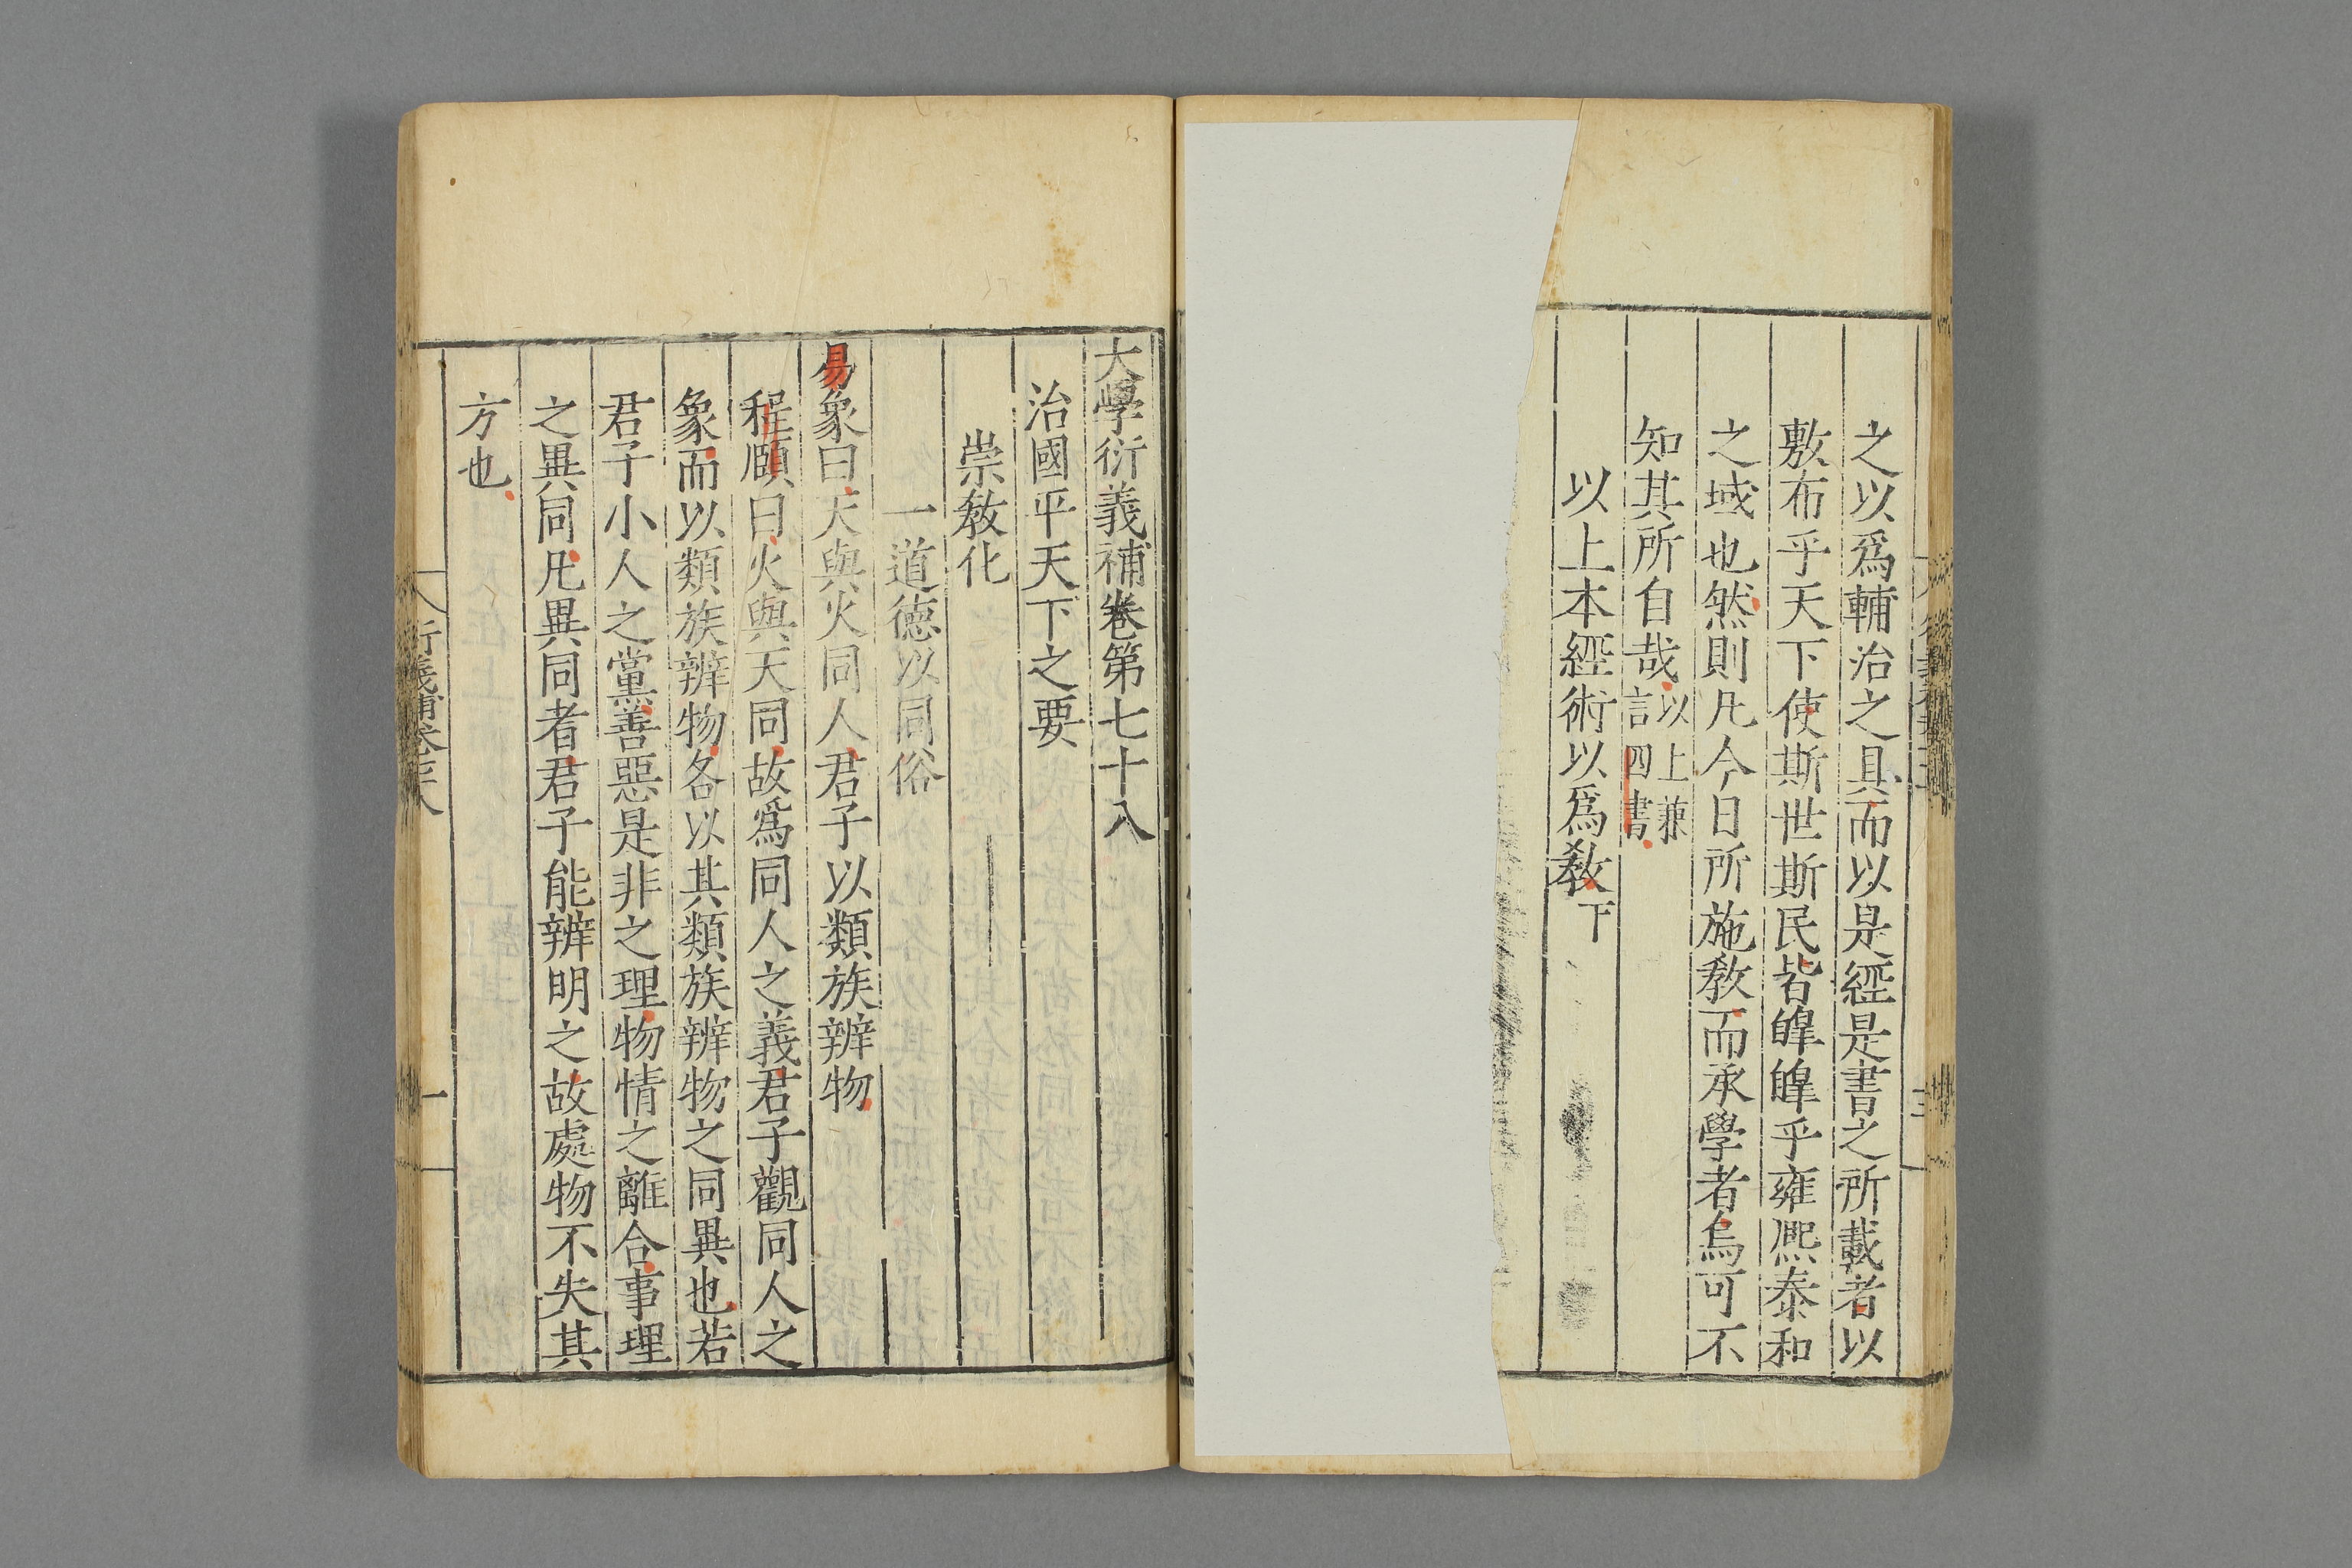 之以爲輔治之具而以是經是書之所載者以
敷布乎天下使斯世斯民皆皥皥乎雍熈泰和
之域也然則凡今日所施敎而承學者烏可不
知其所自哉以上兼言四書
以上本經術以爲敎下
大學衍義補卷第七十八
治國平天下之要
崇敎化
一道德以同俗
易象曰天與火同人君子以類族辨物
程頤曰火與天同故爲同人之義君子觀同人之
象而以類族辨物各以其類族辨物之同異也若
君子小人之黨善惡是非之理物情之離合事理
之異同凡異同者君子能辨明之故處物不失其
方也